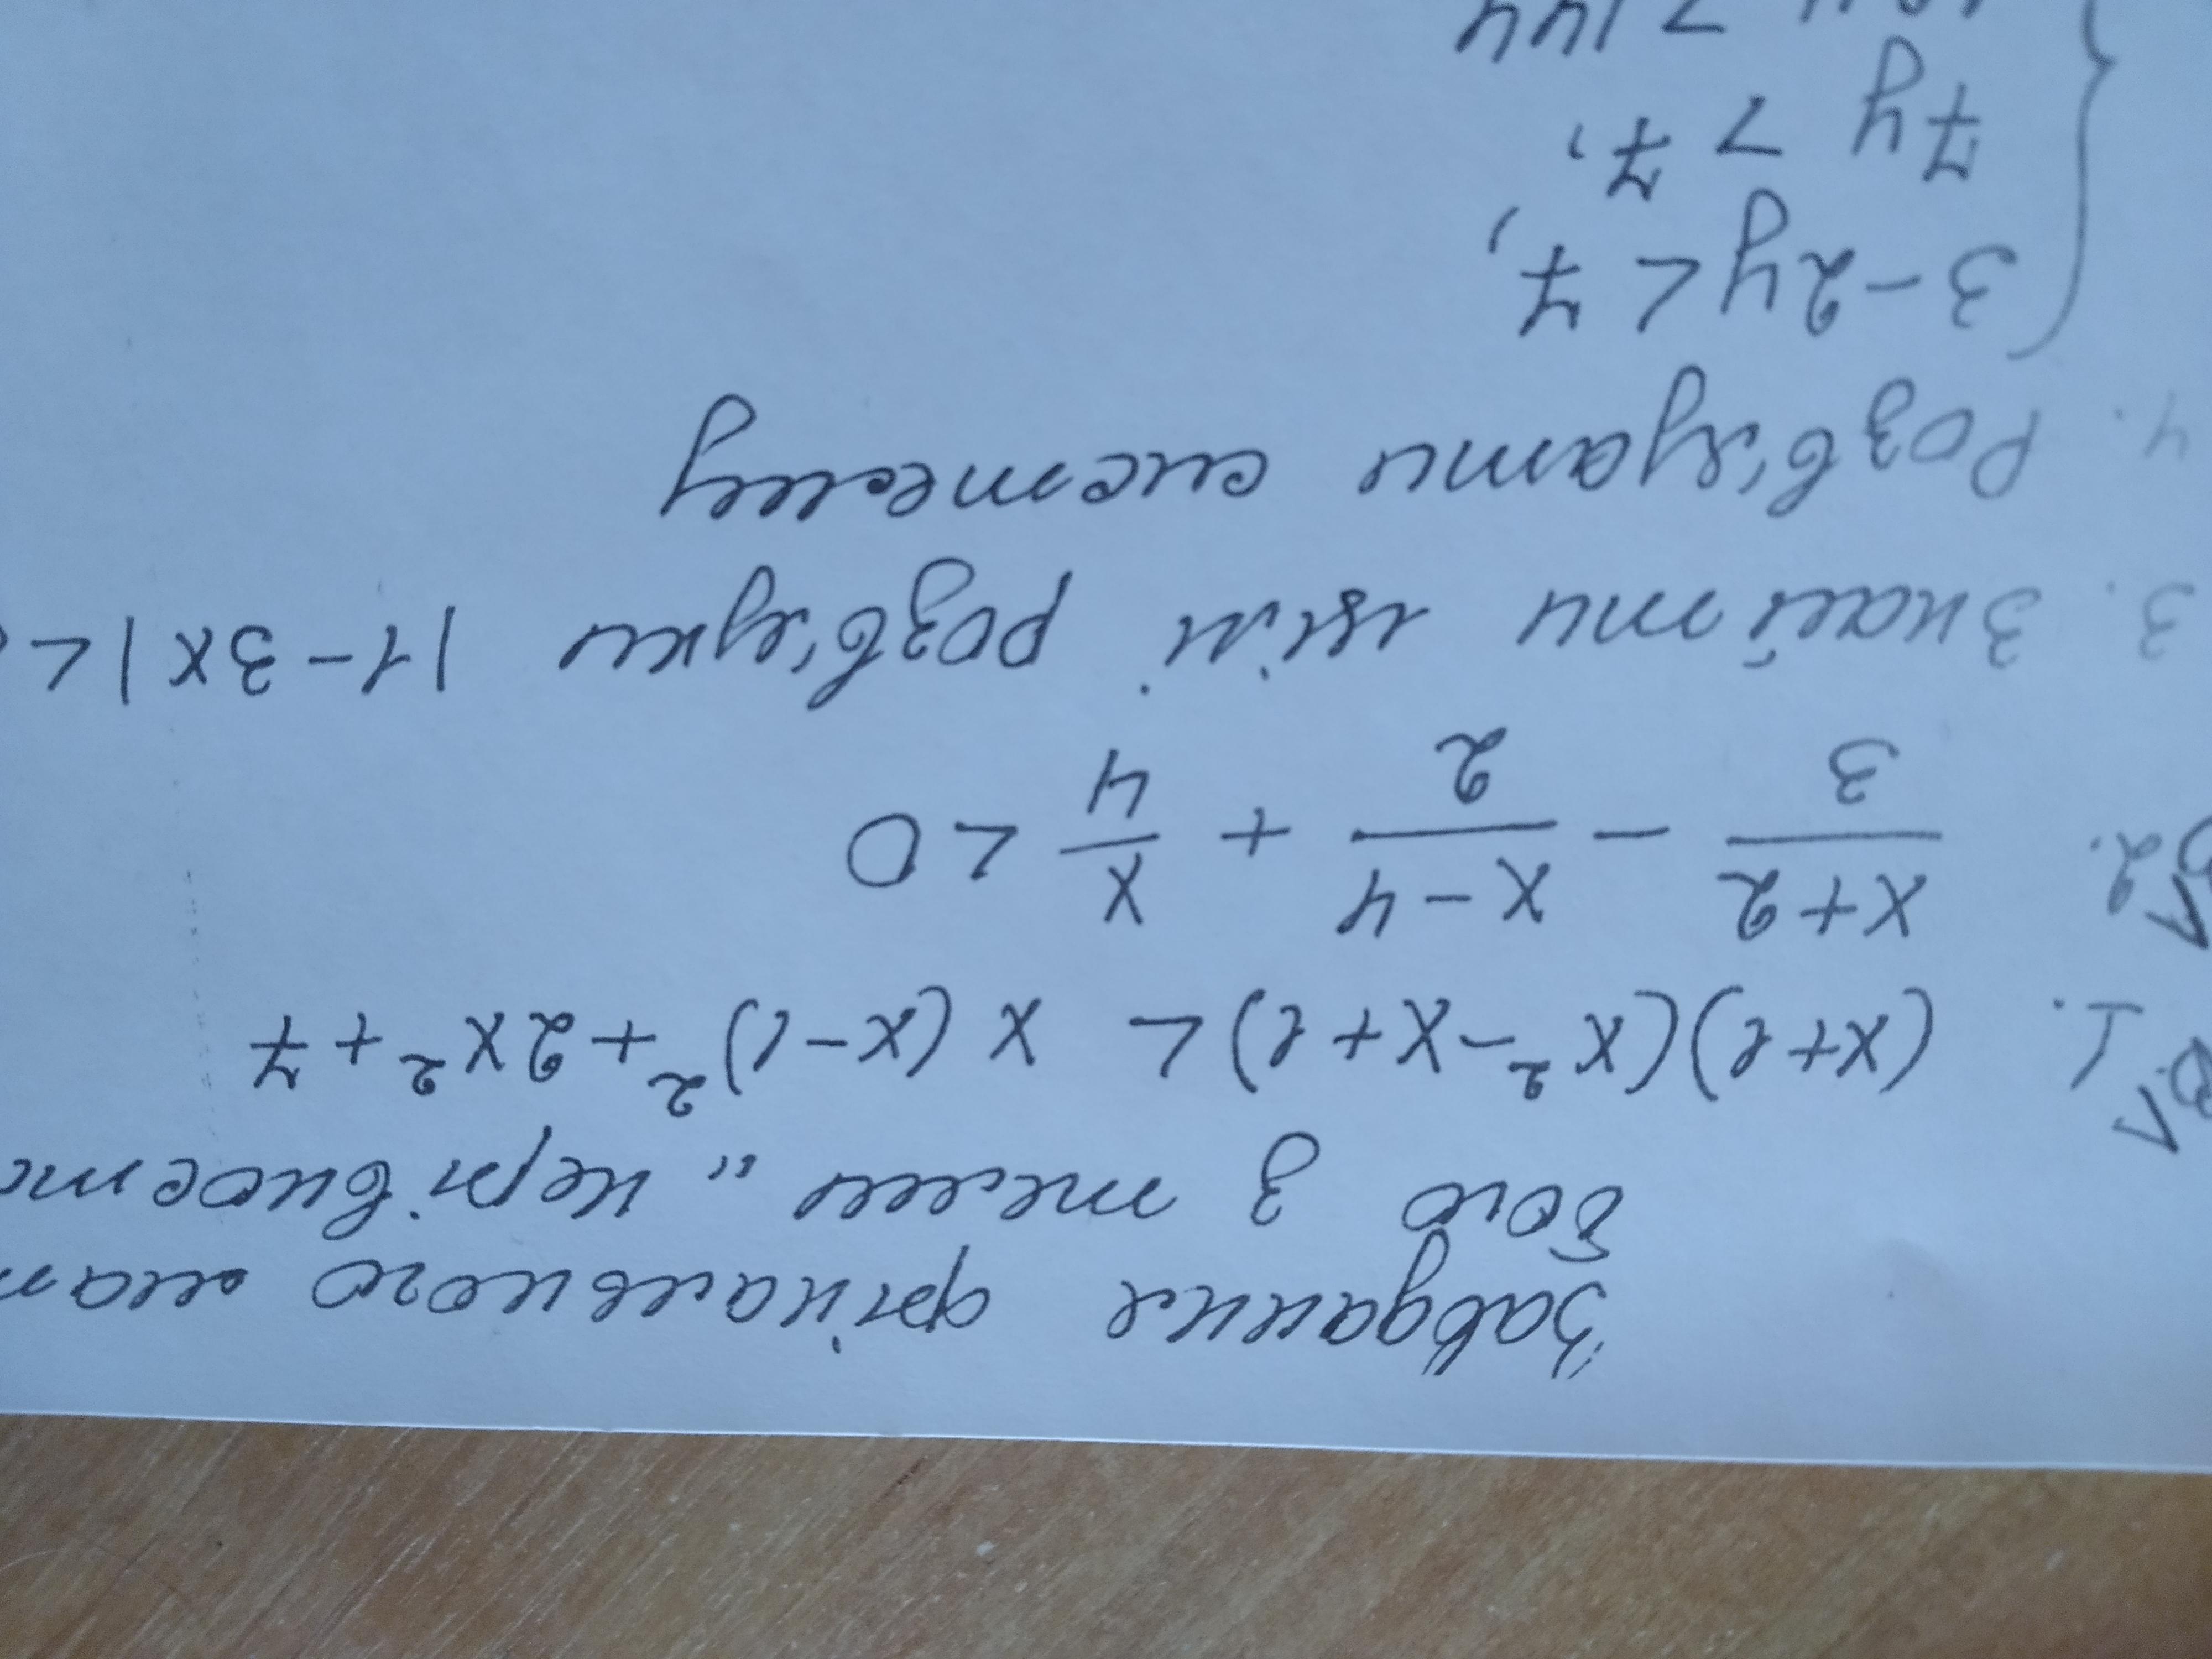 Завдання фінального мат
бою з теми „Нерівност
1. (x+1)(x²-x+1) < x(x-1)²+2x²+7
2. \frac{x+2}{3} - \frac{x-4}{2} + \frac{x}{4} < 0
3. Знайти цілі розв'язки |1-3x| <
4. Розв'язати систему
3-2y < 7,
7y > 7,
> 144